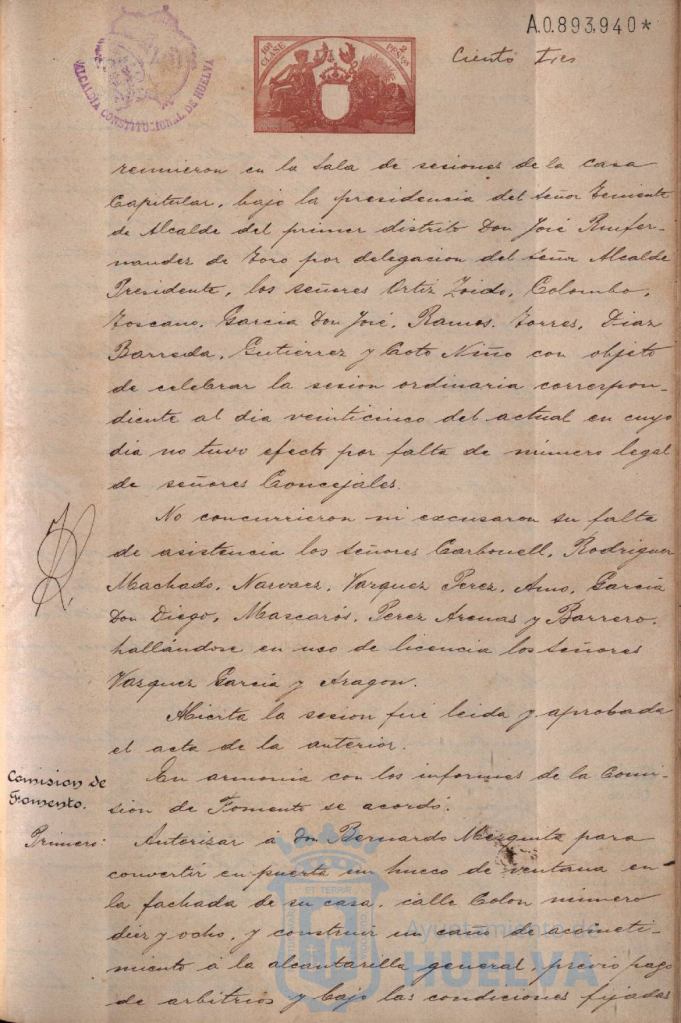 A.0.893.940*
Ciento tres
ALCALDIA CONSTITUCIONAL DE HUELVA
10ª CLASE
2 PESETAS
reunieron en la Sala de sesiones de la casa
Capitular, bajo la presidencia del Señor Teniente
de Alcalde del primer distrito Don José Ruifer-
nandez de Toro por delegacion del Señor Alcalde
Presidente, los señores Ortiz Zoido, Colombo,
Toscano, Garcia Don José, Ramos, Torres, Diaz
Barreda, Gutierrez y Coto Niño con objeto
de celebrar la sesion ordinaria correspon-
diente al dia veinticinco del actual en cuyo
dia no tuvo efecto por falta de número legal
de señores Concejales.
No concurrieron ni excusaron su falta
de asistencia los Señores Carbonell, Rodriguez
Machado, Narvaez, Vazquez Perez, Amo, García
Don Diego, Mascarós, Perez Arenas y Barrero,
hallándose en uso de licencia los Señores
Vazquez García y Aragon.
Abierta la sesion fué leida y aprobada
el acta de la anterior.
Comision de
Fomento.
En armonia con los informes de la Comi-
sion de Fomento se acordó:
Primero:
Autorizar á Don Bernardo Mezquita para
convertir en puerta un hueco de ventana en
la fachada de su casa, calle Colon número
diez y ocho, y construir un caño de acometi-
miento á la alcantarilla general, previo pago
de arbitrios y bajo las condiciones fijadas
Ayuntamiento de
HUELVA